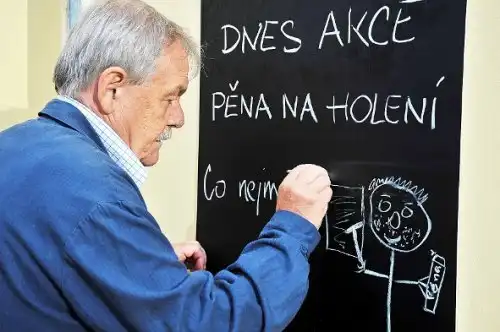 DNES AKCE
PĚNA NA HOLENÍ
Co nejm
pěna